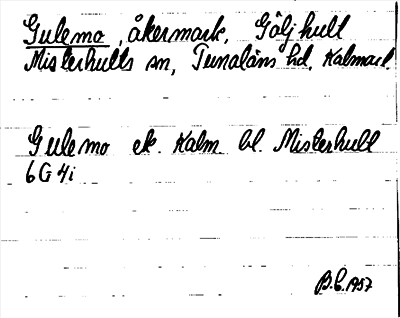 Gulemo, åkermark, Göljhult
Misterhults sn, Tunaläns hd, Kalmar l.
Gulemo ek. Kalm. bl. Misterhult
6G 4i
B.E. 1957